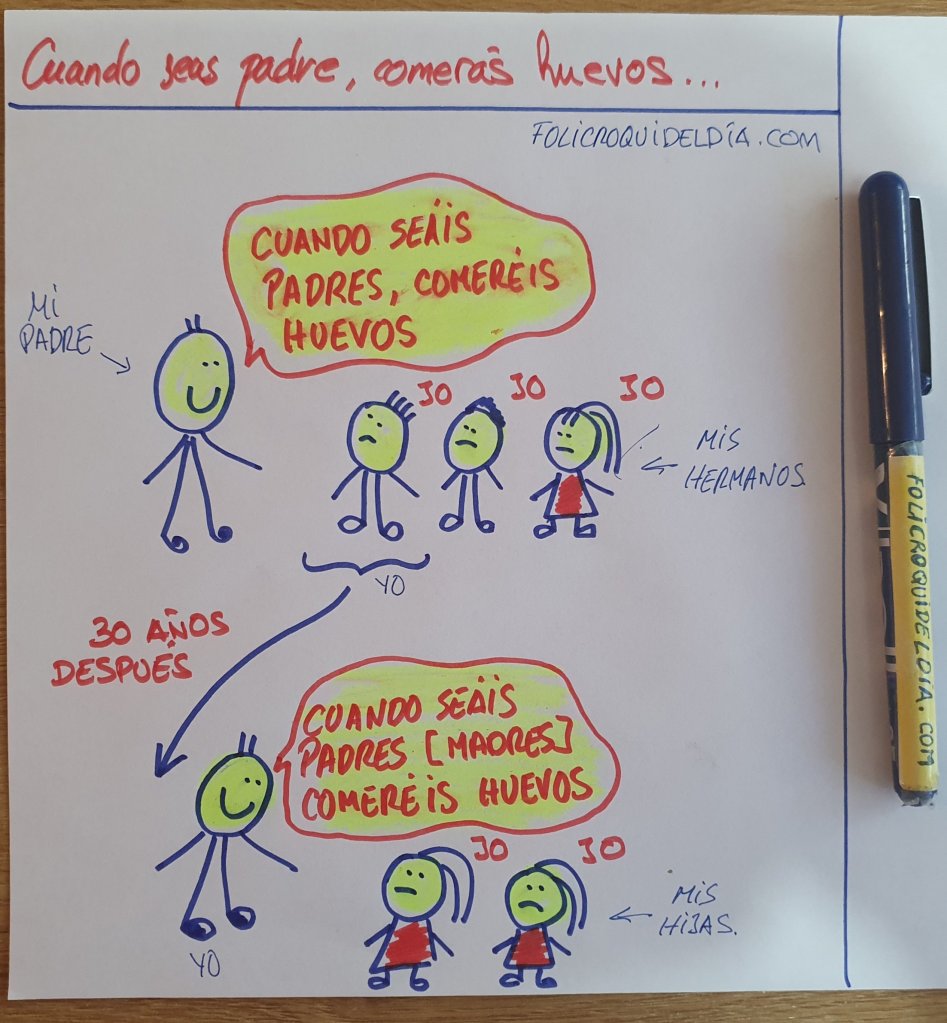 Cuando seas padre, comerás huevos...
FOLICROQUIDELDÍA.COM
CUANDO SEÁIS
PADRES, COMERÉIS
HUEVOS
MI
PADRE
JO
JO
JO
MIS
HERMANOS.
YO
30 AÑOS
DESPUÉS
CUANDO SEÁIS
PADRES [MADRES]
COMERÉIS HUEVOS
JO
JO
MIS
HIJAS.
YO
FOLICROQUIDELDIA.COM